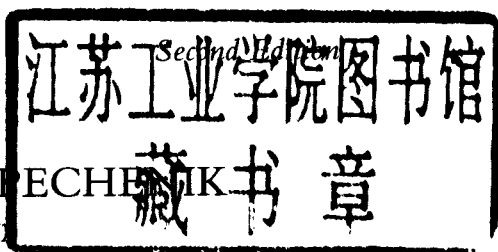 Second Edition
江苏工业学院图书馆
PECHENIK
藏书章